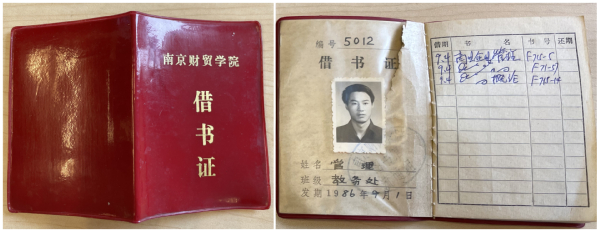 南京财贸学院
借书证
编号 5012
借书证
姓名 管理
班级 教务处
发期 1986年9月1日
借期 书名 书号 还期
9.4 F715-5
9.4 F71-51
9.4 概论 F718-14